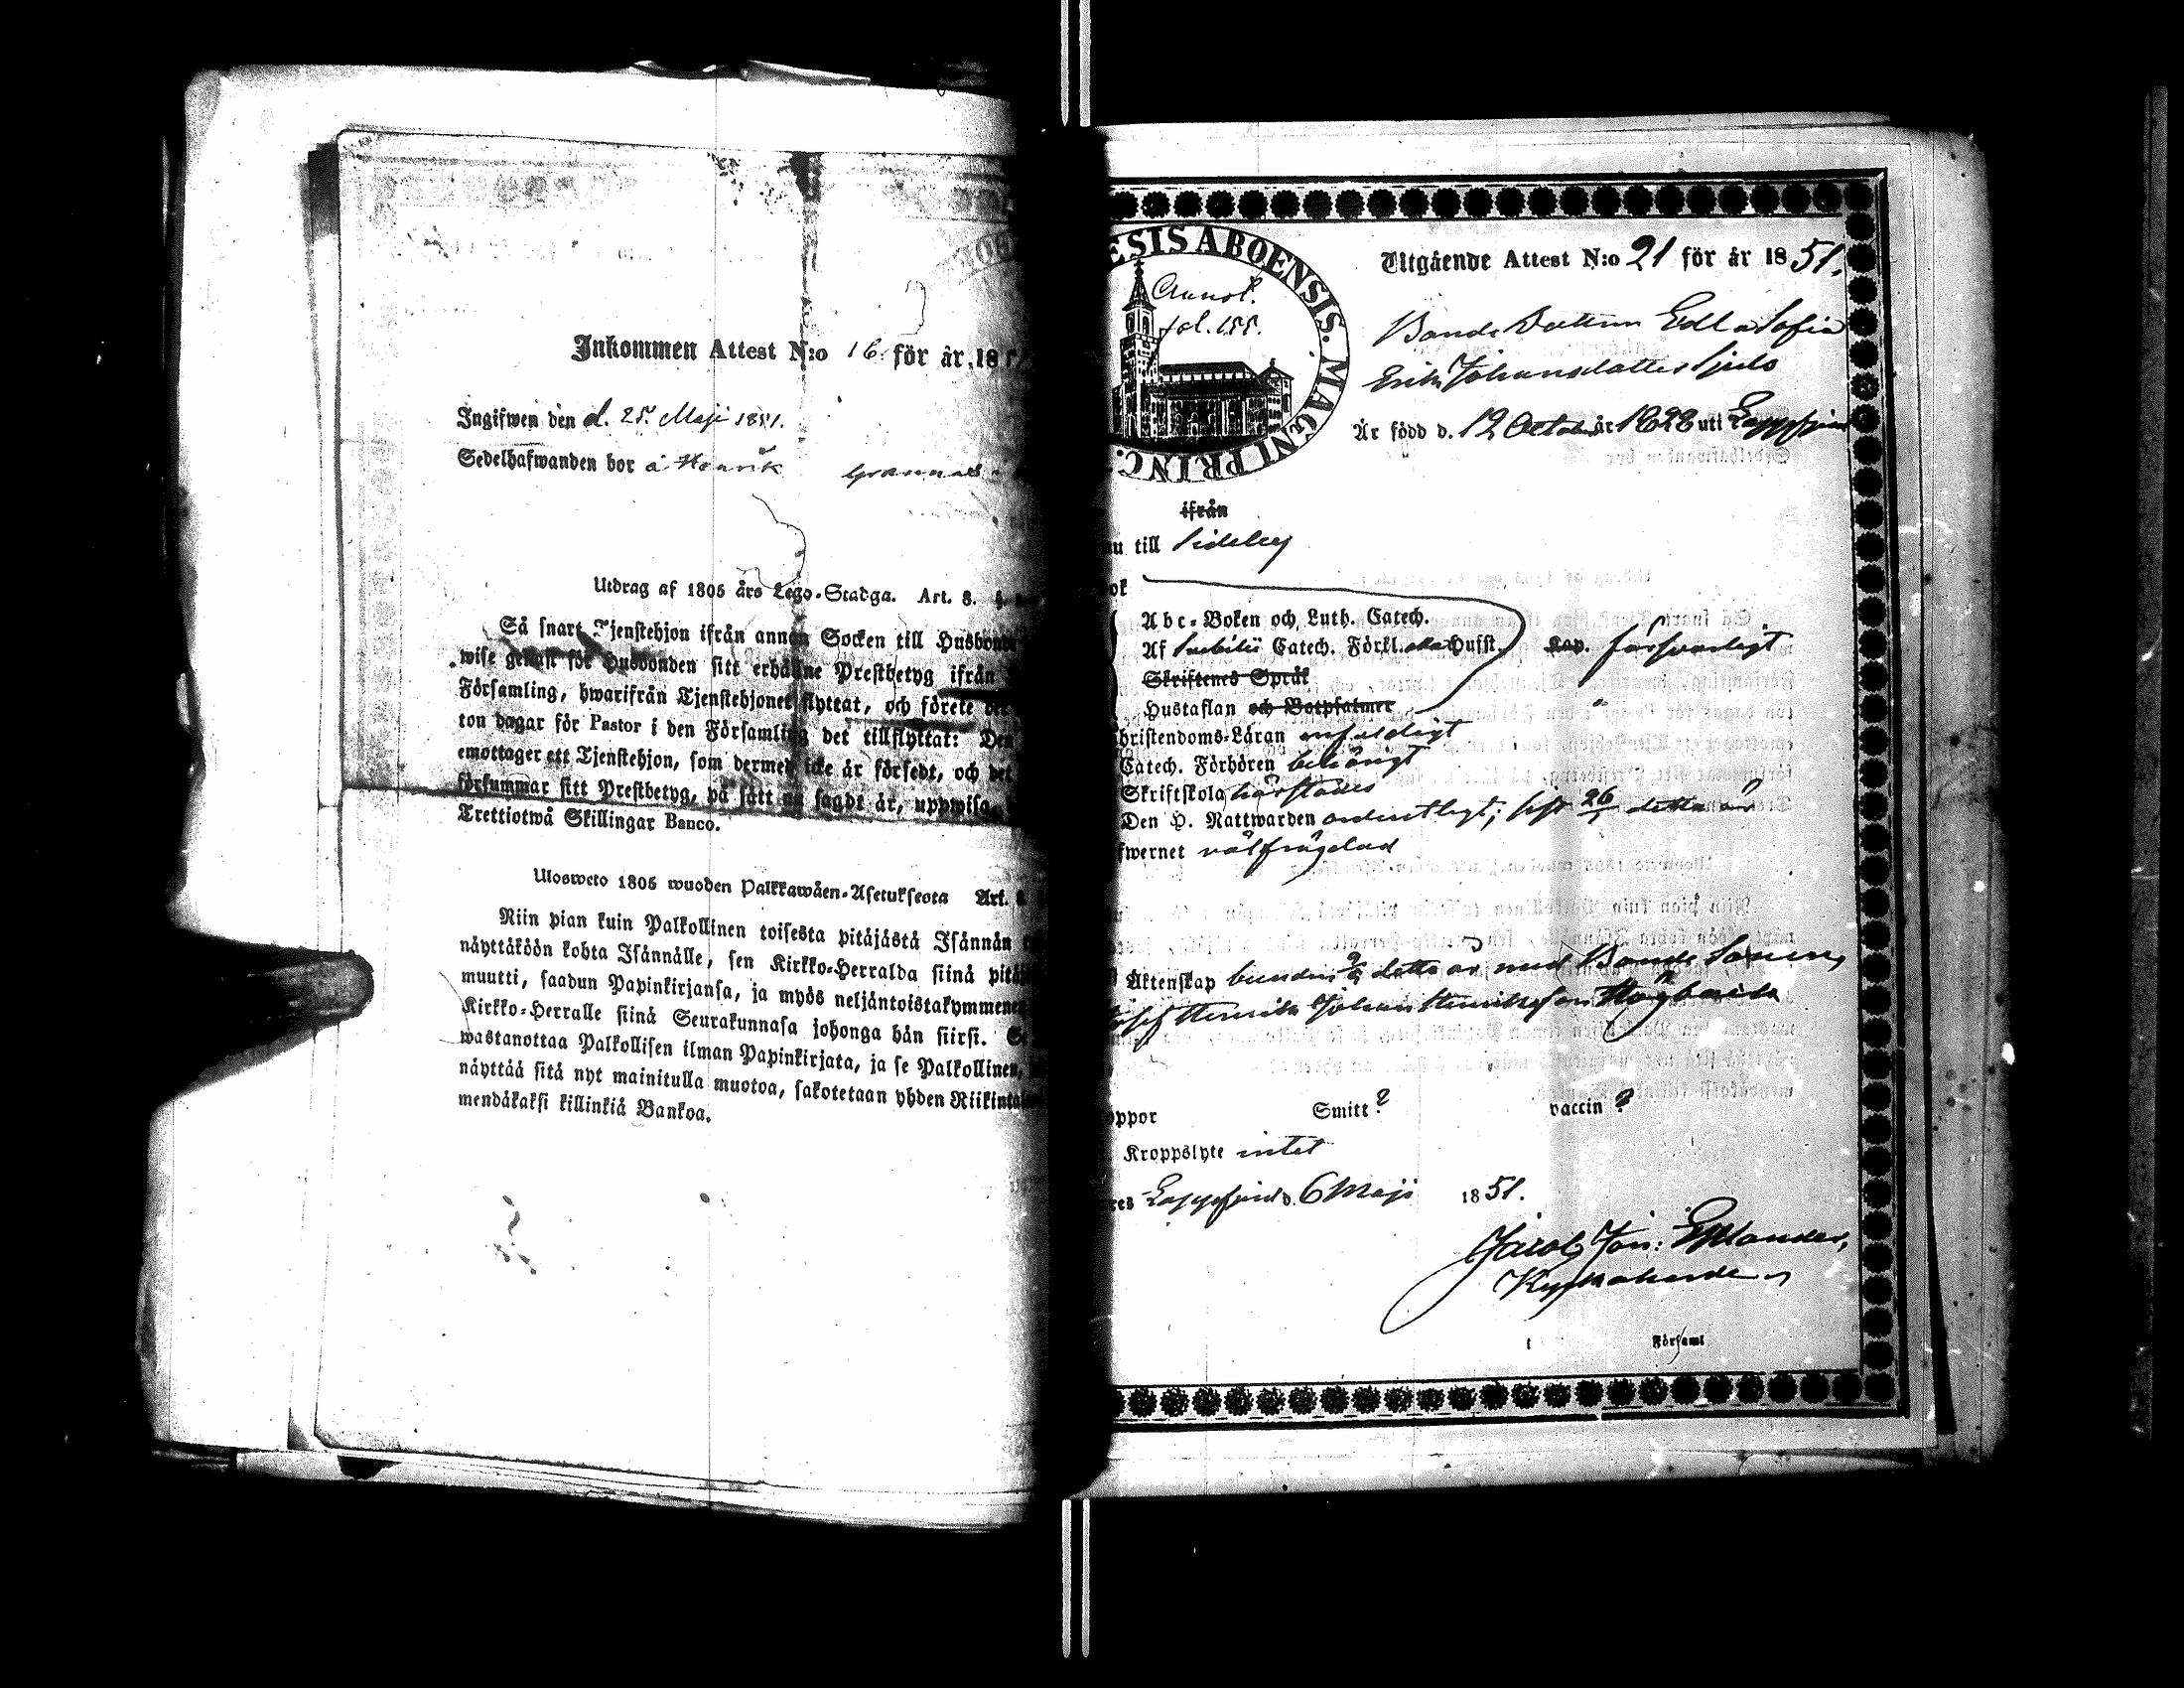 Inkommen Attest N:o 16. för år 18
Ingifwen den d. 25. Maji 1851.
Sedelhafwanden bor å Henrik
Utdrag af 1805 års Lego-Stadga. Art. 8. §.
Så snart Tjenstehjon ifrån annan Socken till Husbonde
wise genast för Husbonden sitt erhållne Prestbetyg ifrån
Församling, hwarifrån Tjenstehjonet flyttat, och förete det
ton dagar för Pastor i den Församling det tillflyttat: Den
emottager ett Tjenstehjon, som dermed icke är försedt, och det
försummar sitt Prestbetyg, på sätt nu sagdt är, uppwisa,
Trettiotwå Skillingar Banco.
Ulosweto 1805 wuoden Palkkawäen-Asetuksesta Art. 8.
Niin pian kuin Palkollinen toisesta pitäjästä Isännän
näyttäköön kohta Isännälle, sen Kirkko-Herralda siinä pitä
muutti, saadun Papinkirjansa, ja myös neljäntoistakymmenen
Kirkko-Herralle siinä Seurakunnasa johonga hän siirsi. Se
wastanottaa Palkollisen ilman Papinkirjata, ja se Palkollinen,
näyttää sitä nyt mainitulla muotoa, sakotetaan yhden Riikintal
mendäkaksi killinkiä Bankoa.
ESIS ABOENSIS. MAGNI PRINC.
Annot.
fol. 155.
Utgående Attest N:o 21 för år 1851.
Bonde Dottren Edla Sofia
Erik Johansdotter Sjulo
Är född d. 12 Octob. år 1828 uti Lappfjerd
ifrån
nu till Sideby
ok
Abc-Boken och Luth. Catech.
Af Svebilii Catech. Förkl. Husst. Kap. försvarligt
Skriftenes Språk
Hustaflan och Botpsalmer
hristendoms-Läran enfaldigt
Catech. Förhören bevistigt
Skriftskola
Den H. Nattwarden ordentligt; sist 26 detta år
fwernet välfrägdad
Äktenskap bunden detta år med Bonde Sonen,
Josef Henrik Johan Henriksson Högback
oppor Smitt? vaccin?
Kroppslyte intet
res Lappfjerd d. 6 Maji 1851.
Jacob Joh: Estlander,
Kyrkoherde
i Församl